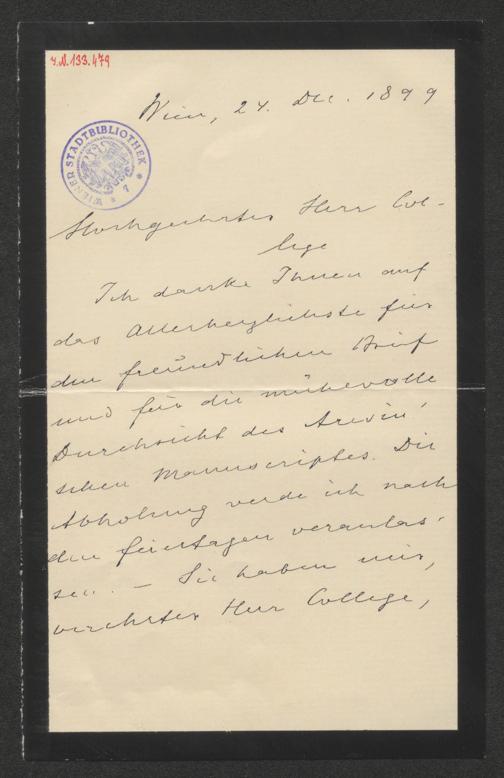 J.N. 133.479
Wien, 24. Dec. 1899
WIENER STADTBIBLIOTHEK
* 7 *
Hochgeehrter Herr Col-
lege
Ich danke Ihnen auf
das Allerherzlichste für
den freundlichen Brief
und für die mühevolle
Durchsicht des
schen Manuscriptes. Die
Abholung werde ich nach
den Feiertagen veranlas-
sen. — Sie haben mir,
verehrter Herr College,